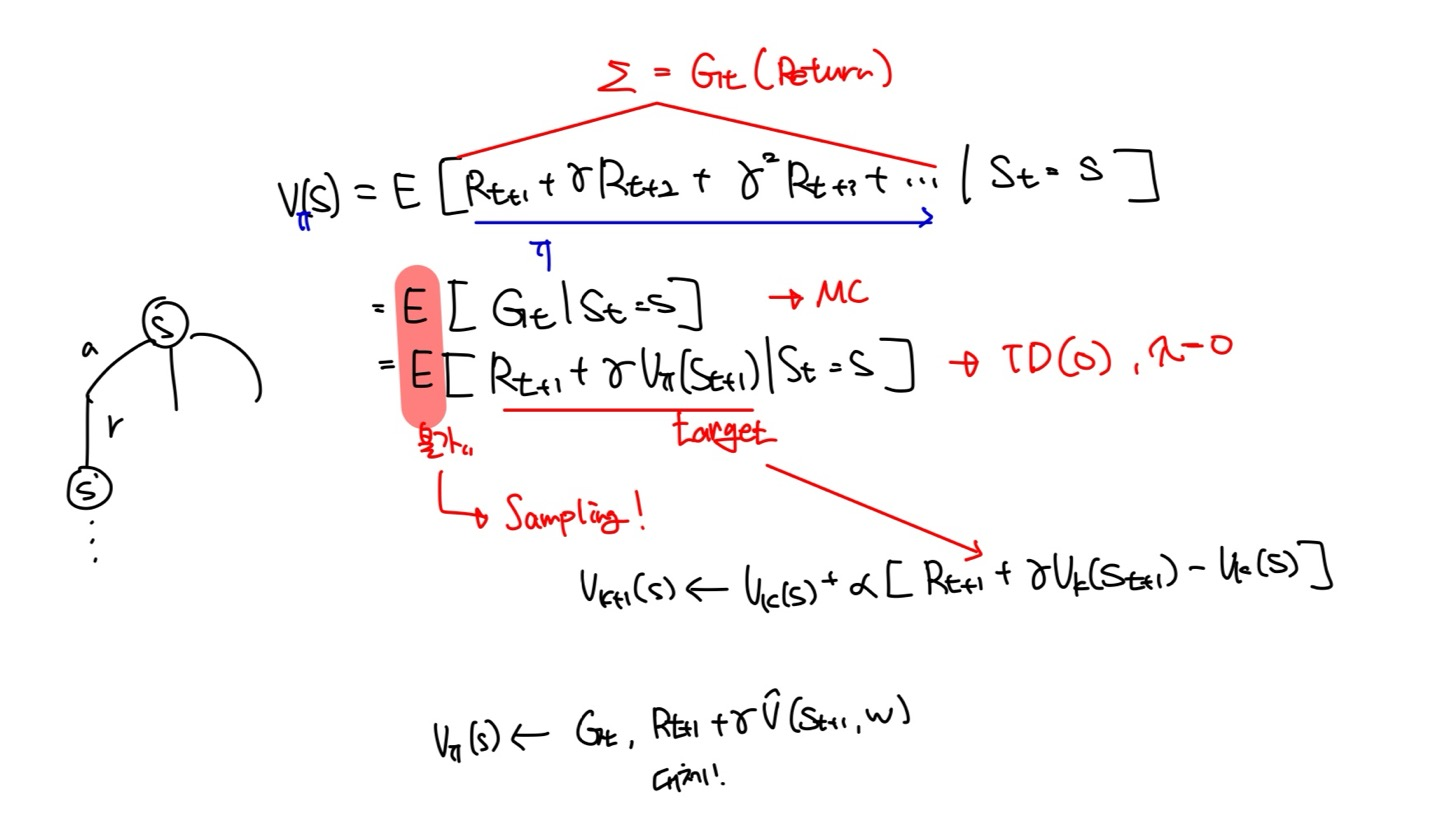 Σ = Gt (Return)
Vπ(s) = E [Rt+1 + γRt+2 + γ²Rt+3 + ... | St = s]
π
= E [Gt | St = s] → MC
= E [Rt+1 + γVπ(St+1) | St = s] → TD(0), λ=0
target
→ Sampling!
Vk+1(s) ← Vk(s) + α[Rt+1 + γVk(St+1) - Vk(s)]
Vπ(s) ← Gt, Rt+1 + γV̂(St+1, w)
대체!
s
a
r
s'
⋮